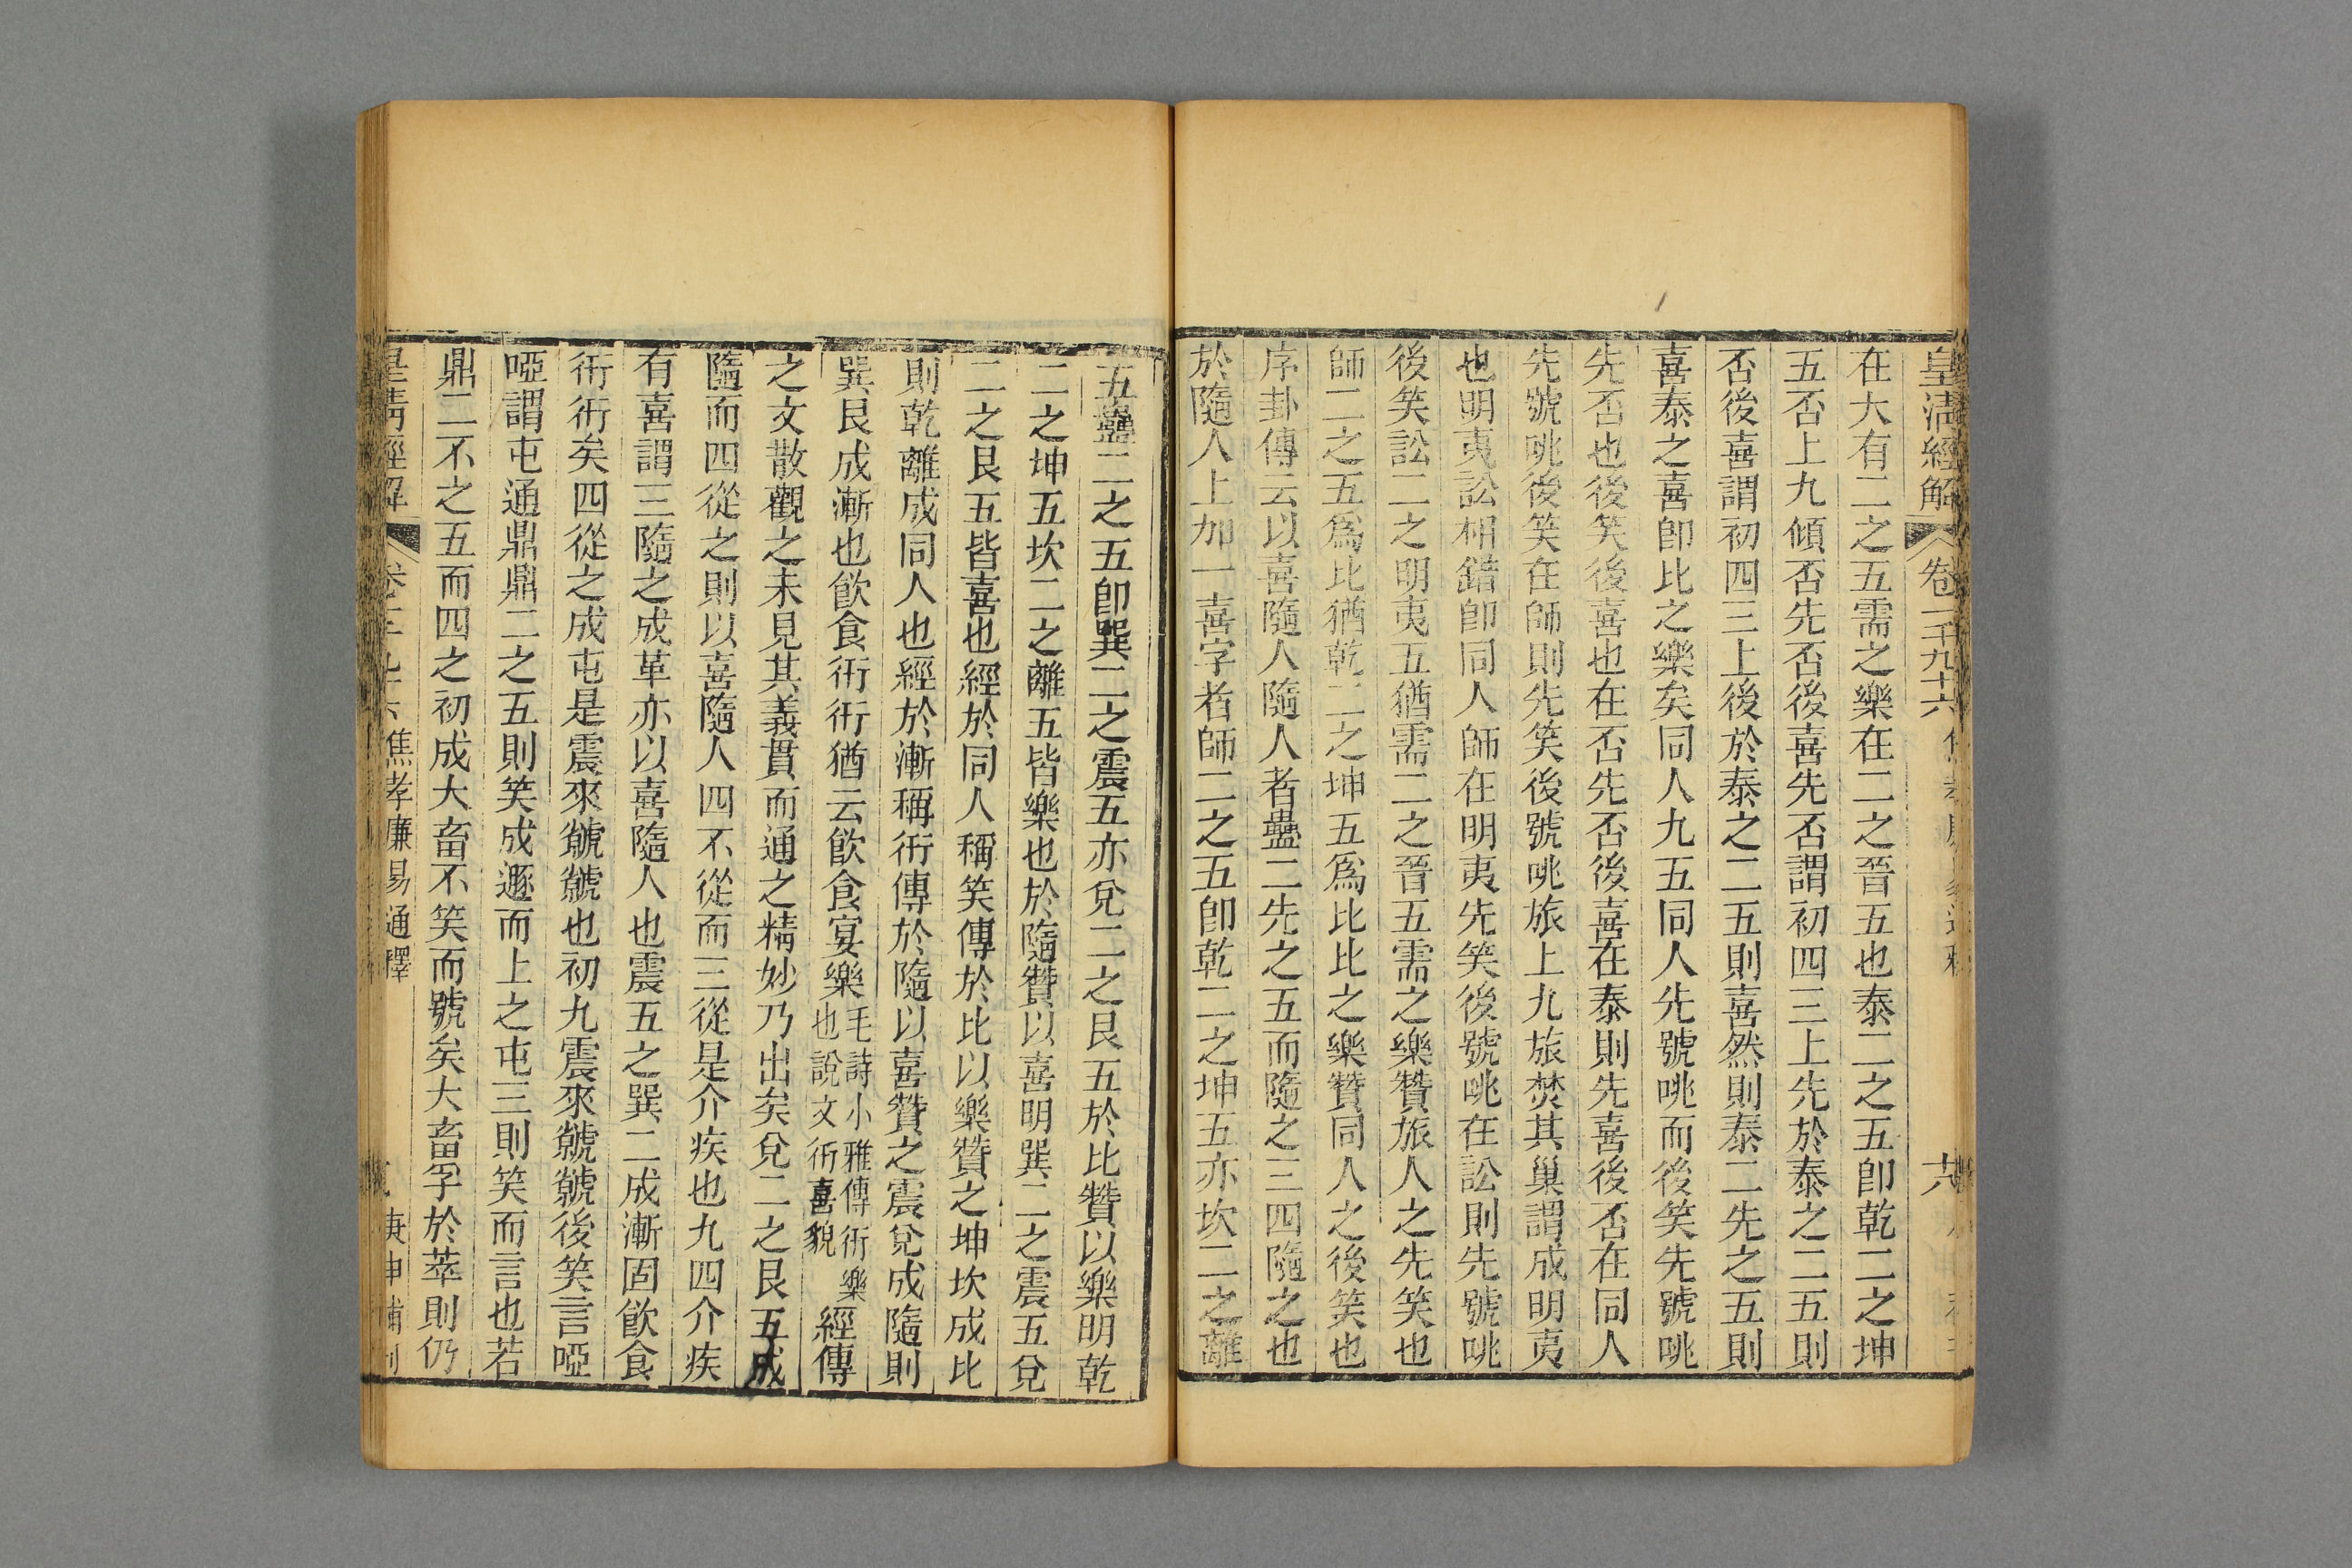 皇清經解 卷一千九十六 六
在大有二之五需之樂在二之晉五也泰二之五即乾二之坤
五否上九傾否先否後喜先否謂初四三上先於泰之二五則
否後喜謂初四三上後於泰之二五則喜然則泰二先之五則
喜泰之喜即比之樂矣同人九五同人先號咷而後笑先號咷
先否也後笑後喜也在否先否後喜在泰則先喜後否在同人
先號咷後笑在師則先笑後號咷旅上九旅焚其巢謂成明夷
也明夷訟相錯即同人師在明夷先笑後號咷在訟則先號咷
後笑訟二之明夷五猶需二之晉五需之樂贊旅人之先笑也
師二之五為比猶乾二之坤五為比比之樂贊同人之後笑也
序卦傳云以喜隨人隨人者蠱二先之五而隨之三四隨之也
於隨人上加一喜字者師二之五即乾二之坤五亦坎二之離
五蠱二之五即巽二之震五亦兌二之艮五於比贊以樂明乾
二之坤五坎二之離五皆樂也於隨贊以喜明巽二之震五兌
二之艮五皆喜也經於同人稱笑傳於比以樂贊之坤坎成比
則乾離成同人也經於漸稱衎傳於隨以喜贊之震兌成隨則
巽艮成漸也飲食衎衎猶云飲食宴樂毛詩小雅傳衎樂也說文衎喜貌經傳
之文散觀之未見其義貫而通之精妙乃出矣兌二之艮五成
隨而四從之則以喜隨人四不從而三從是介疾也九四介疾
有喜謂三隨之成革亦以喜隨人也震五之巽二成漸固飲食
衎衎矣四從之成屯是震來虩虩也初九震來虩虩後笑言啞
啞謂屯通鼎鼎二之五則笑成遯而上之屯三則笑而言也若
鼎二不之五而四之初成大畜不笑而號矣大畜孚於萃則仍
皇清經解 焦孝廉易通釋 庚申補刊